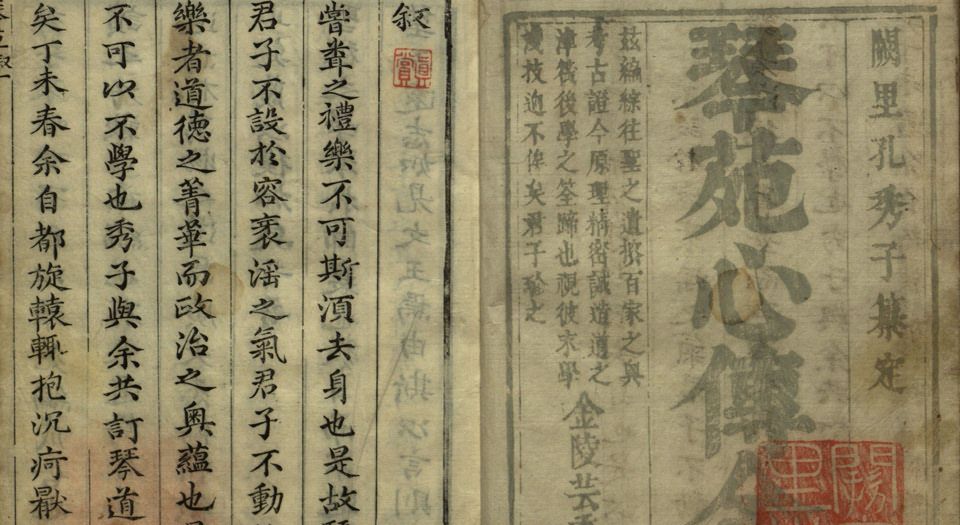 闕里孔秀子纂定
琴苑心傳全
茲編綜往聖之遺百家之奧
考古證今原理精密誠造道之
津筏後學之筌蹄也視彼末學
淺技逈不侔矣君子珍之
金陵芸
闕里
叙
真賞
嘗聾之禮樂不可斯湏去身也是故
君子不設於容衺滛之氣君子不動
樂者道德之菁華而政治之奧蘊也
不可以不學也秀子與余共訂琴道
矣丁未春余自都旋轅輙抱沉疴猒